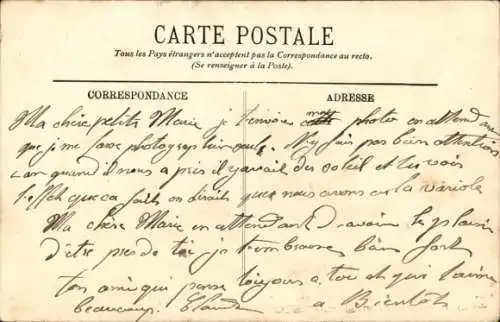 CARTE POSTALE
Tous les Pays étrangers n'acceptent pas la Correspondance au recto.
(Se renseigner à la Poste).
CORRESPONDANCE
ADRESSE
Ma chère petite Marie je t'envoie mon photo en attendant
que je me fasse photographier seule. N'y fais pas bien attention
car quand il nous a pris il y avait du soleil et tu vois
l'effet que ça fait on dirait que nous avons eu la variole
Ma chère Marie en attendant d'avoir le plaisir
d'être près de toi je t'embrasse bien fort
ton ami qui pense toujours a toi et qui t'aime
beaucoup. a Bientot